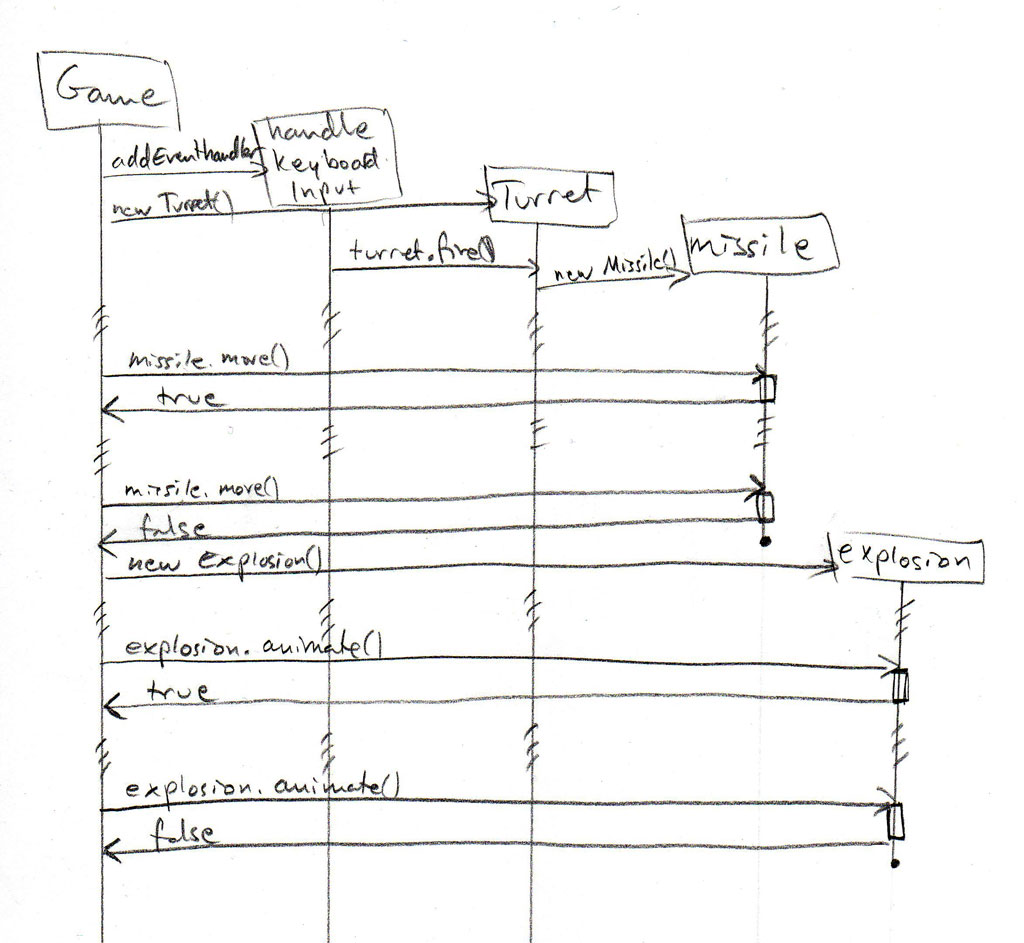 Game
handle
keyboard
Input
addEventhandler
new Turret()
Turret
turret.fire()
missile
new Missile()
missile.move()
true
missile.move()
false
new Explosion()
explosion
explosion.animate()
true
explosion.animate()
false